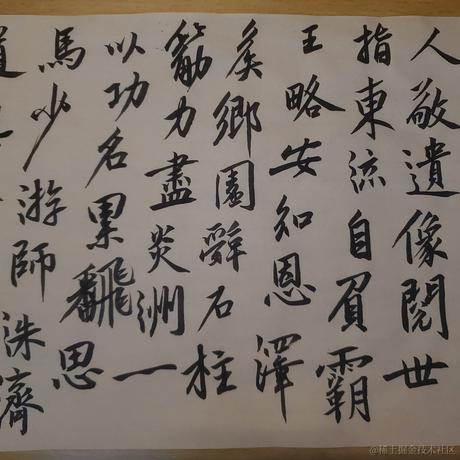 人敬遺像閱世
指東流自負霸
王略安知恩澤
矦鄉園辭石柱
筋力盡炎洲一
以功名累飜思
馬少游師洙濟
道
@稀土掘金技术社区